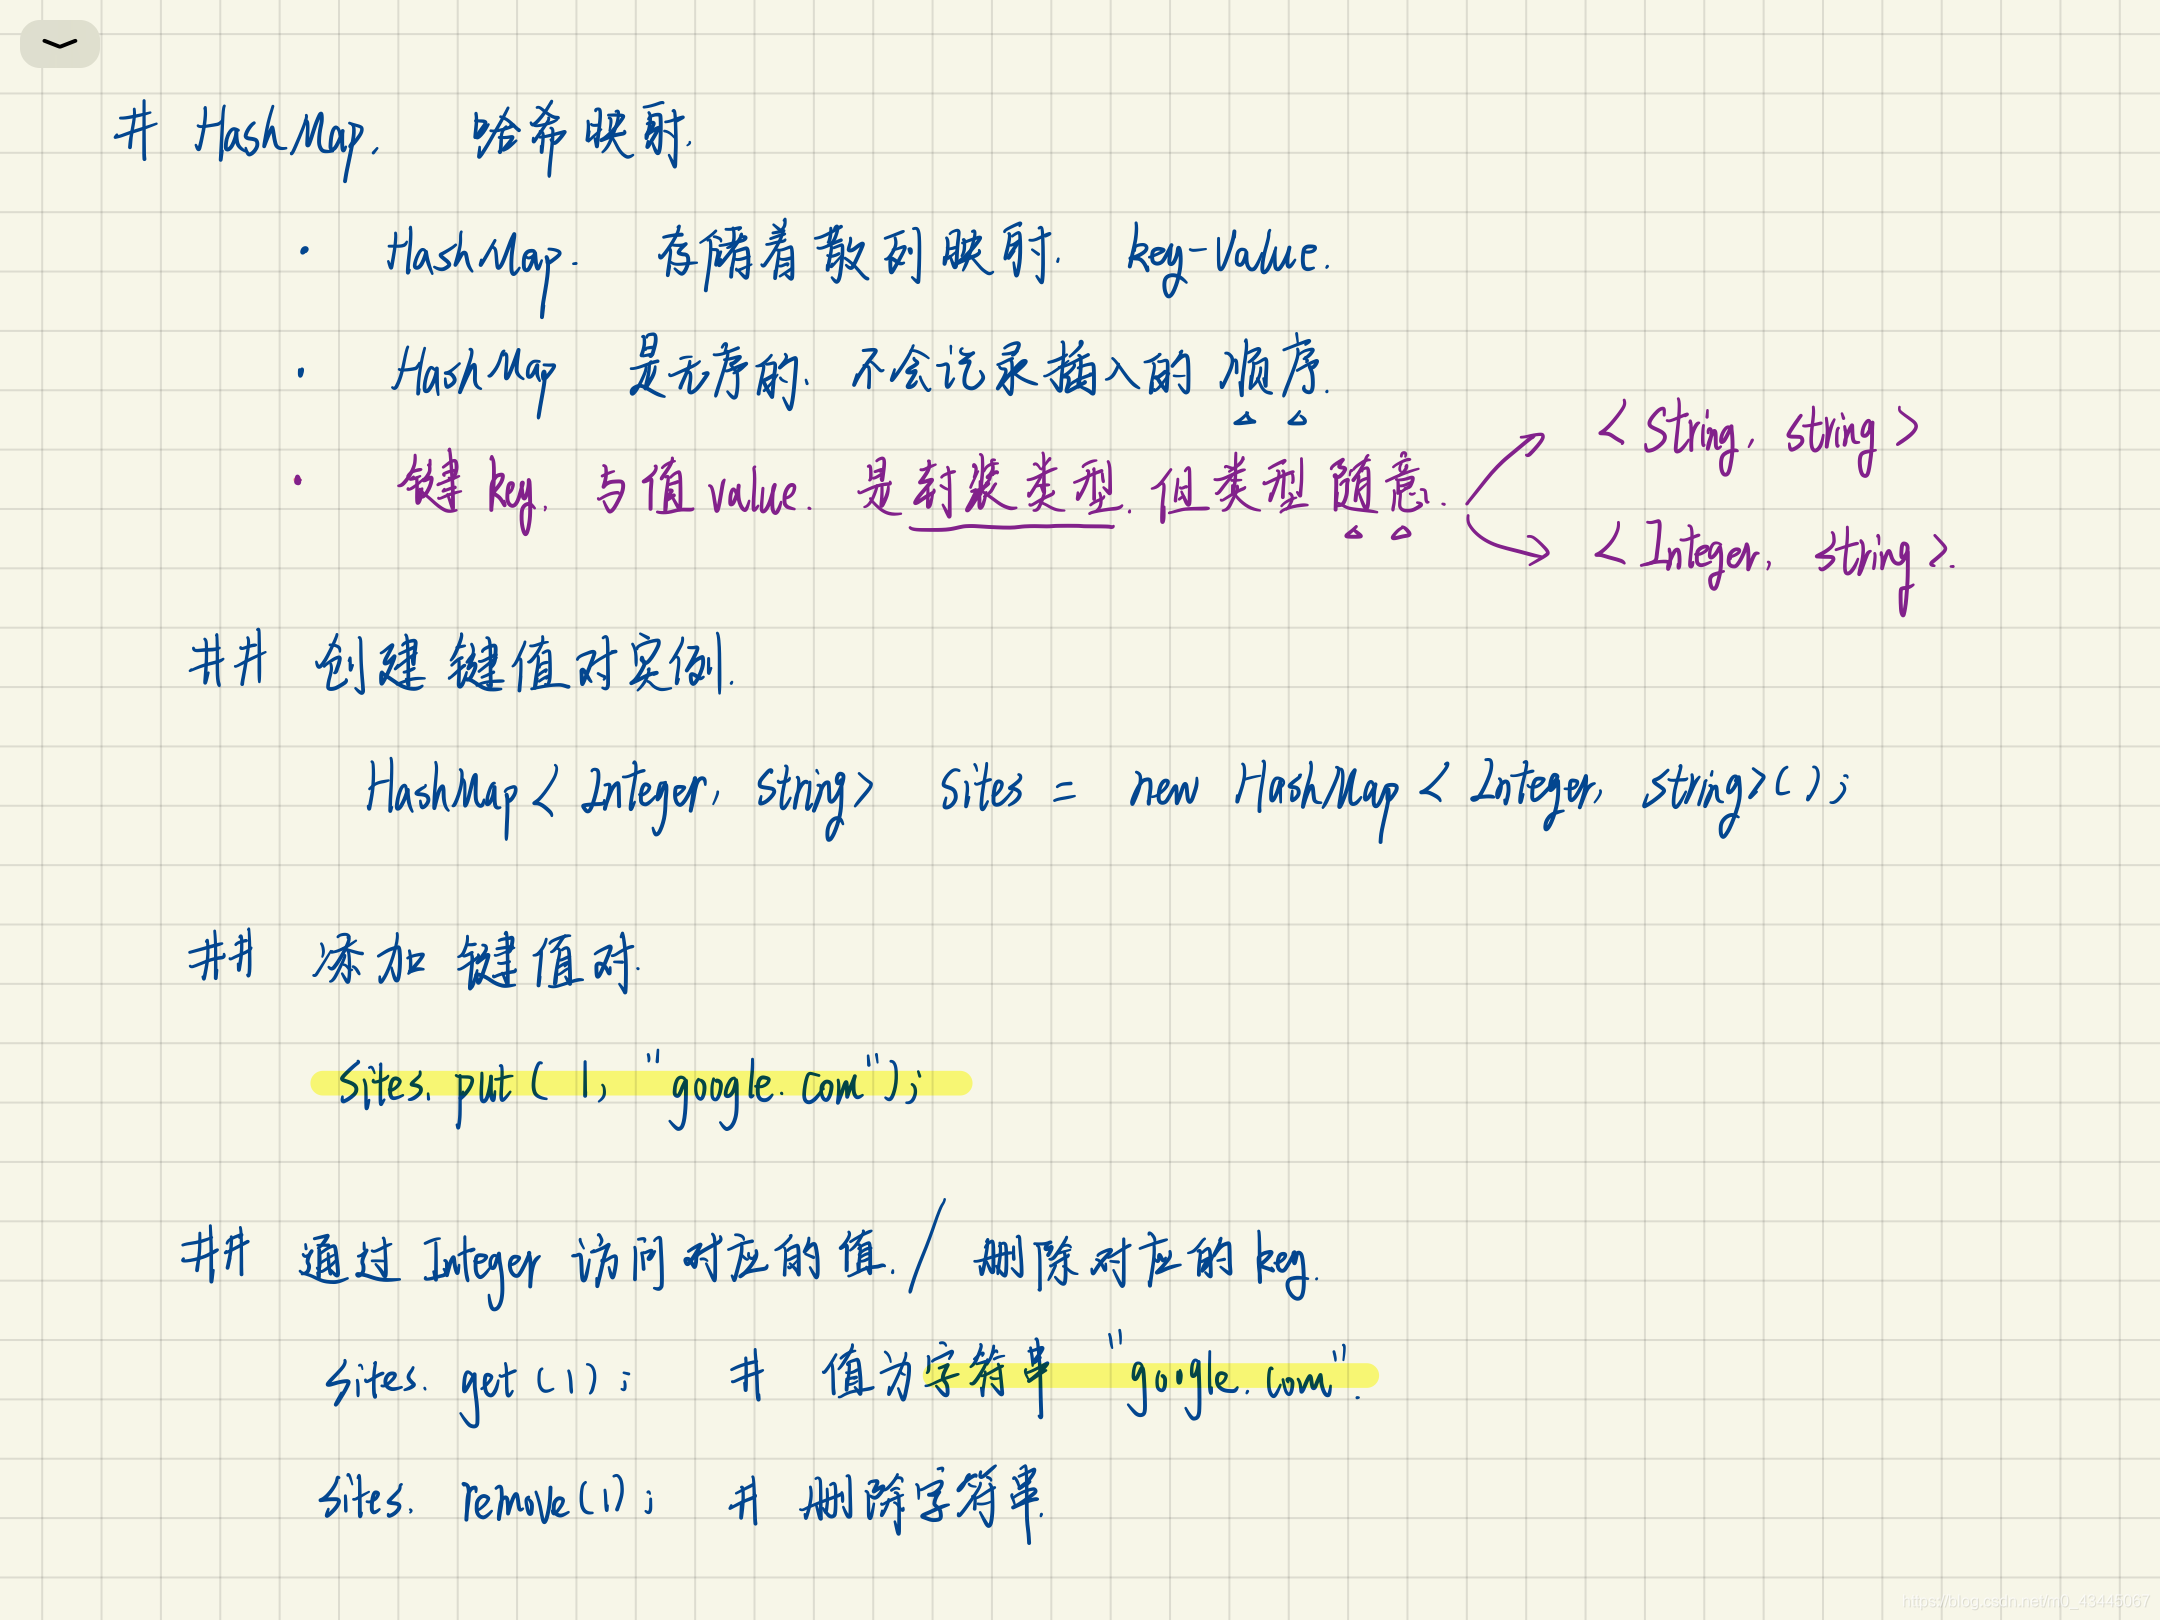 # HashMap. 哈希映射.
· HashMap. 存储着散列映射. key-value.
· HashMap 是无序的. 不会记录插入的顺序.
· 键key. 与值value. 是封装类型. 但类型随意.
<String, string>
<Integer, string>.
## 创建键值对实例.
HashMap<Integer, string> Sites = new HashMap<Integer, string>();
## 添加键值对.
Sites.put(1, "google.com");
## 通过Integer访问对应的值. / 删除对应的key.
sites.get(1); # 值为字符串 "google.com".
sites.remove(1); # 删除字符串.
https://blog.csdn.net/m0_43445067